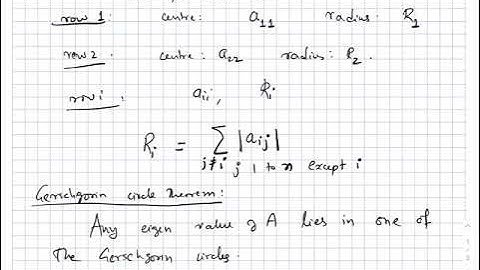 row 1: centre: a11 radius: R1
row 2: centre: a22 radius: R2.
row i: aii, Ri
Ri = ∑ |aij|
j≠i j 1 to n except i
Gerschgorin circle Theorem:
Any eigen value of A lies in one of
The Gerschgorin circles.